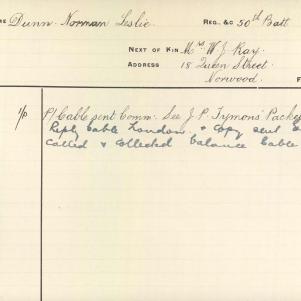 RE Dunn. Norman Leslie. REG. &C 50th Batt
NEXT OF KIN Mrs W. J. Kay.
ADDRESS 18 Queen Street.
Norwood. F
1/P P/ Cable sent Comm. See J. P. Trymons' Packe
Reply Cable London. & Copy sent
Called & Collected balance Cable